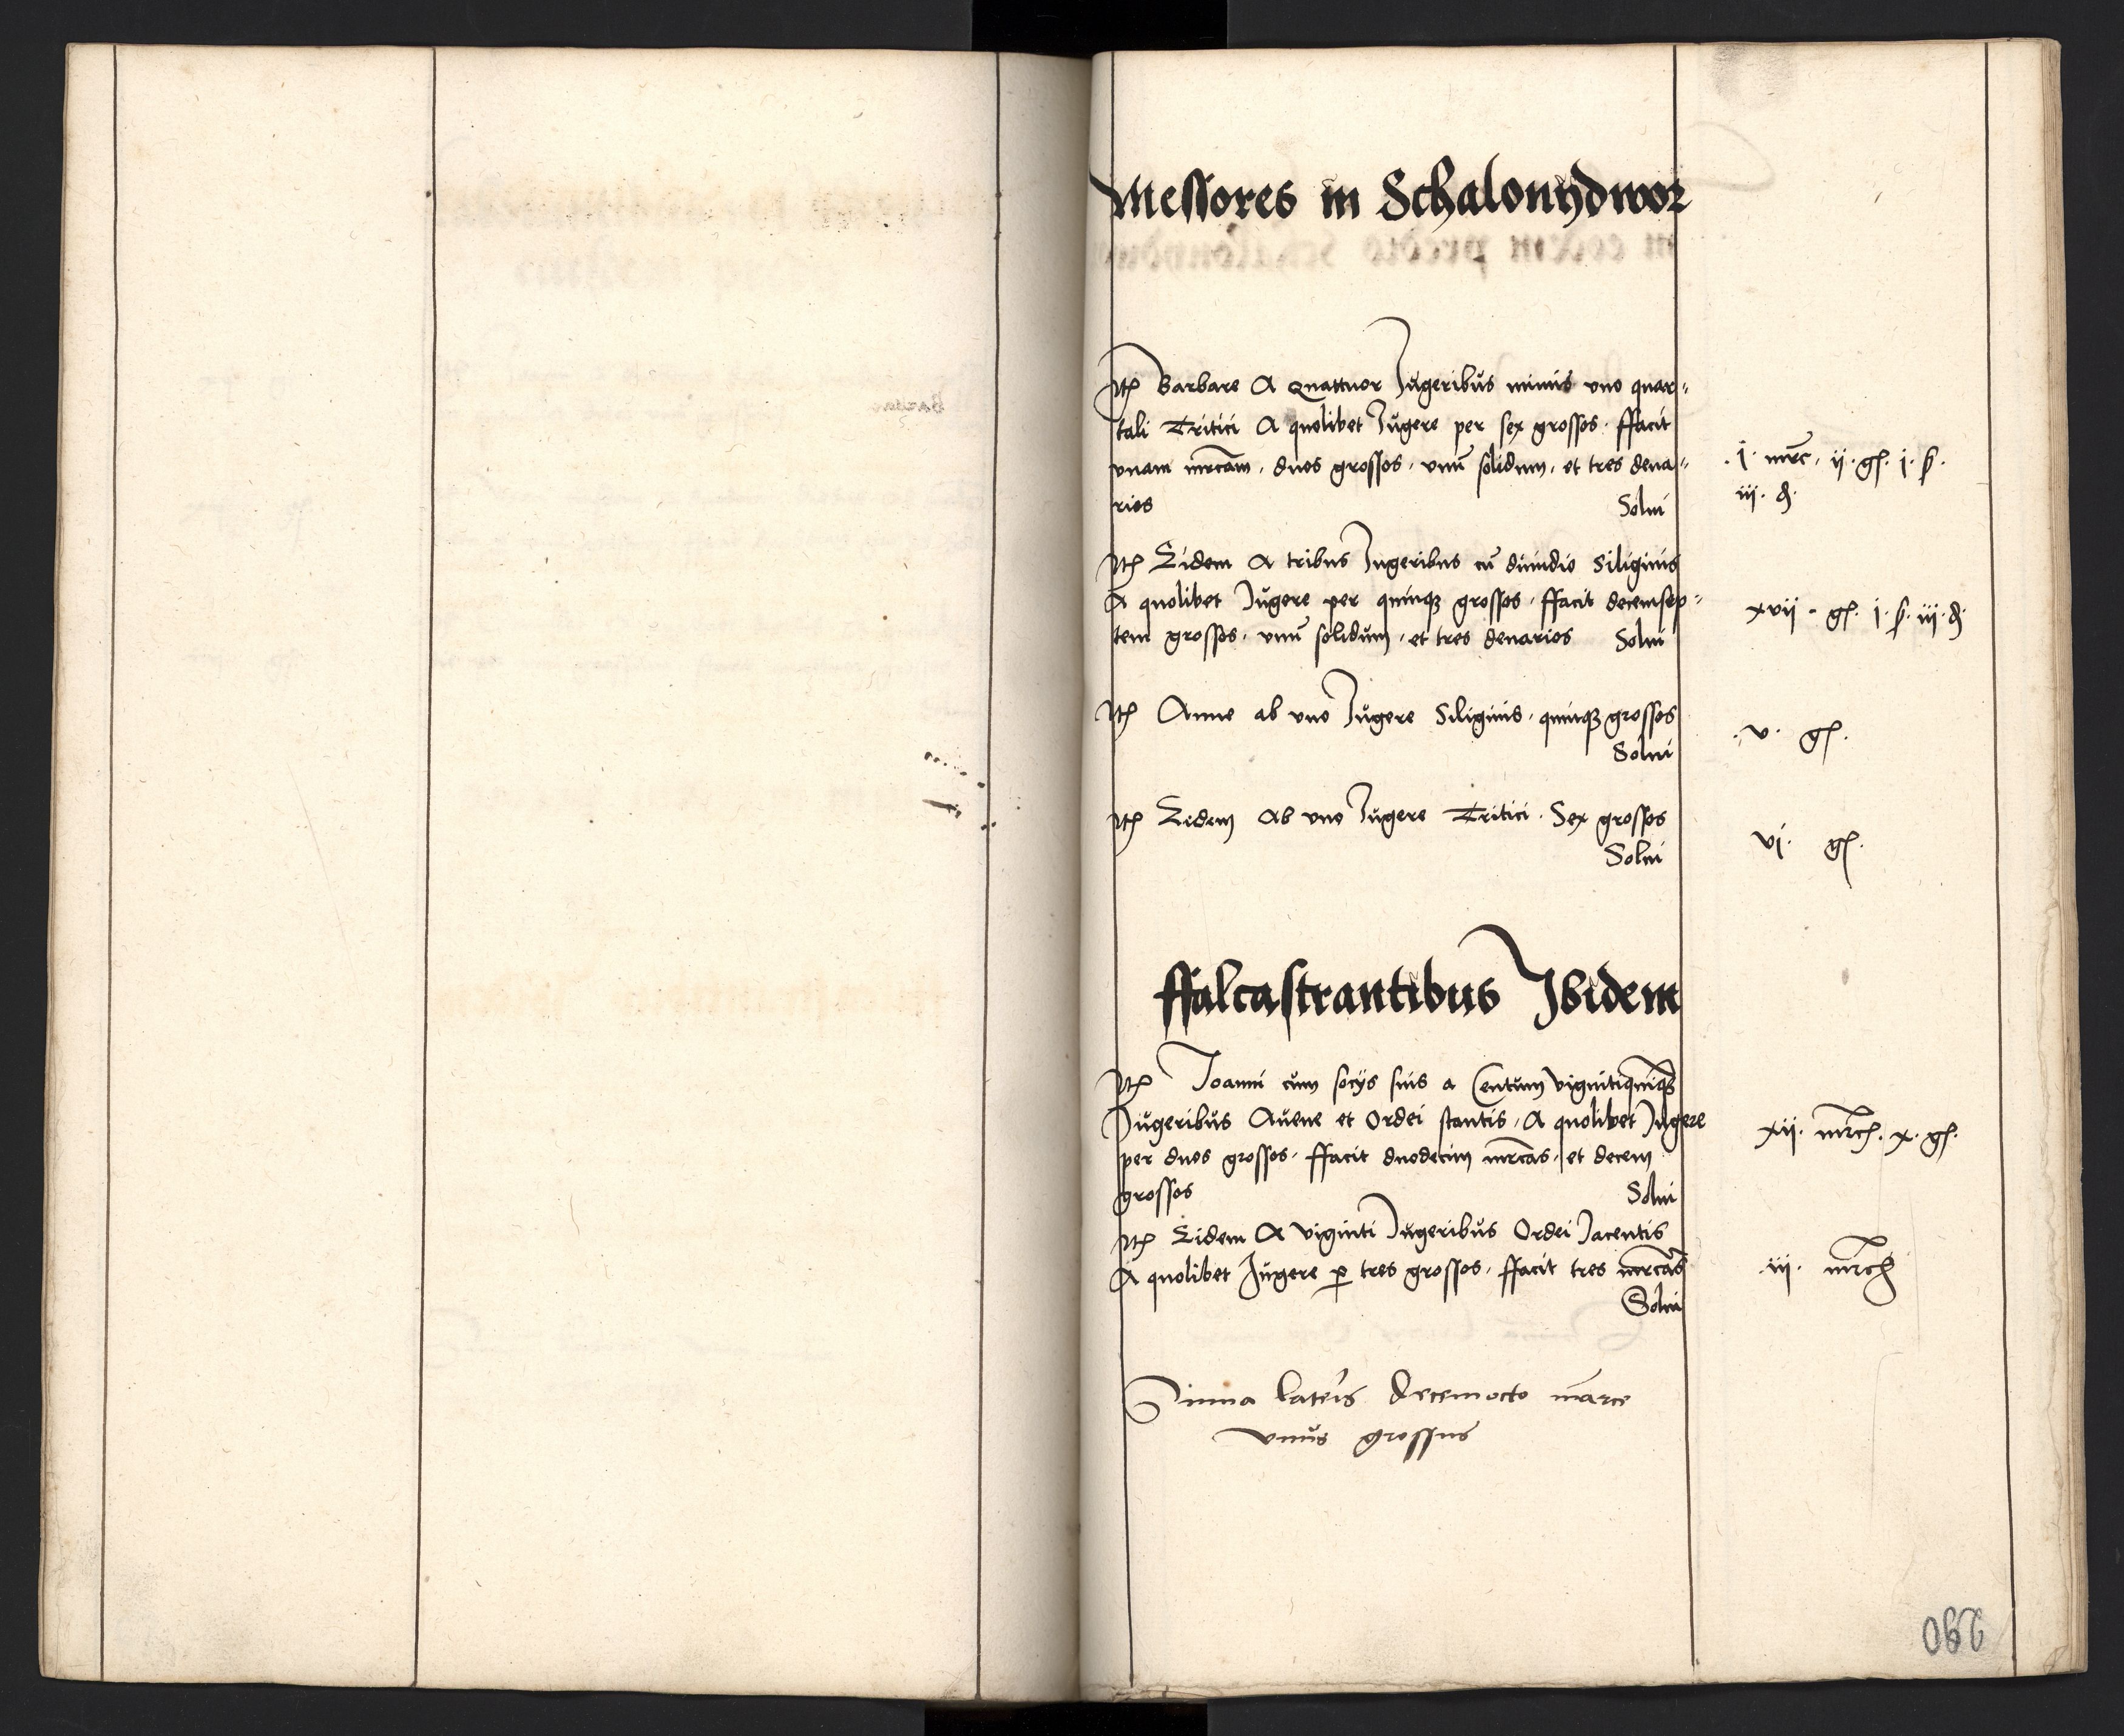 Messores in Schalonÿdwor
Itē Barbare A Quattuor Jugeribus minus vno quar=
tali Tritici A quolibet Jugere per sex grossos. ffacit
vnam mrcam, duos grossos, vnū solidum, et tres dena=
rios Solui
.j. mrc. ij. gſ. j. ß.
iij. ₰.
Itē Eidem A tribus Jugeribus cū dimidio Siliginis
A quolibet Jugere per quinqꝫ grossos, ffacit decemsep=
tem grossos, vnū solidum, et tres denarios Solui
xvij. gſ. j. ß. iij. ₰.
Itē Anne ab vno Jugere Siliginis, quinqꝫ grossos
Solui
.v. gſ.
Itē Eidem Ab vno Jugere Tritici. Sex grossos
Solui
vj. gſ.
ffalcastrantibus Ibidem
Itē Joanni cum socijs suis a Centum vigintiquinqꝫ
Jugeribus Auene et Ordei stantis, A quolibet Jugere
per duos grossos. ffacit duodecim mrcas, et decem
grossos Solui
xij. mrcſ. x. gſ.
Itē Eidem A viginti Jugeribus Ordei Jacentis
A quolibet Jugere ꝑ tres grossos, ffacit tres mrcas
Solui
.iij. mrcſ
Suma lateris decemocto marce
vnus grossus